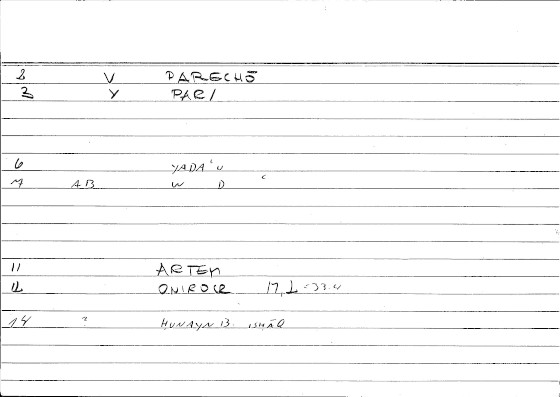 2 V PARECHŌ
3 Y PAR/
6 YADAʿU
M AB W D ʿ
11 ARTEM
12 ONIROCR 17, 1-33.4
14 ? ḤUNAYN B. ISḤĀQ